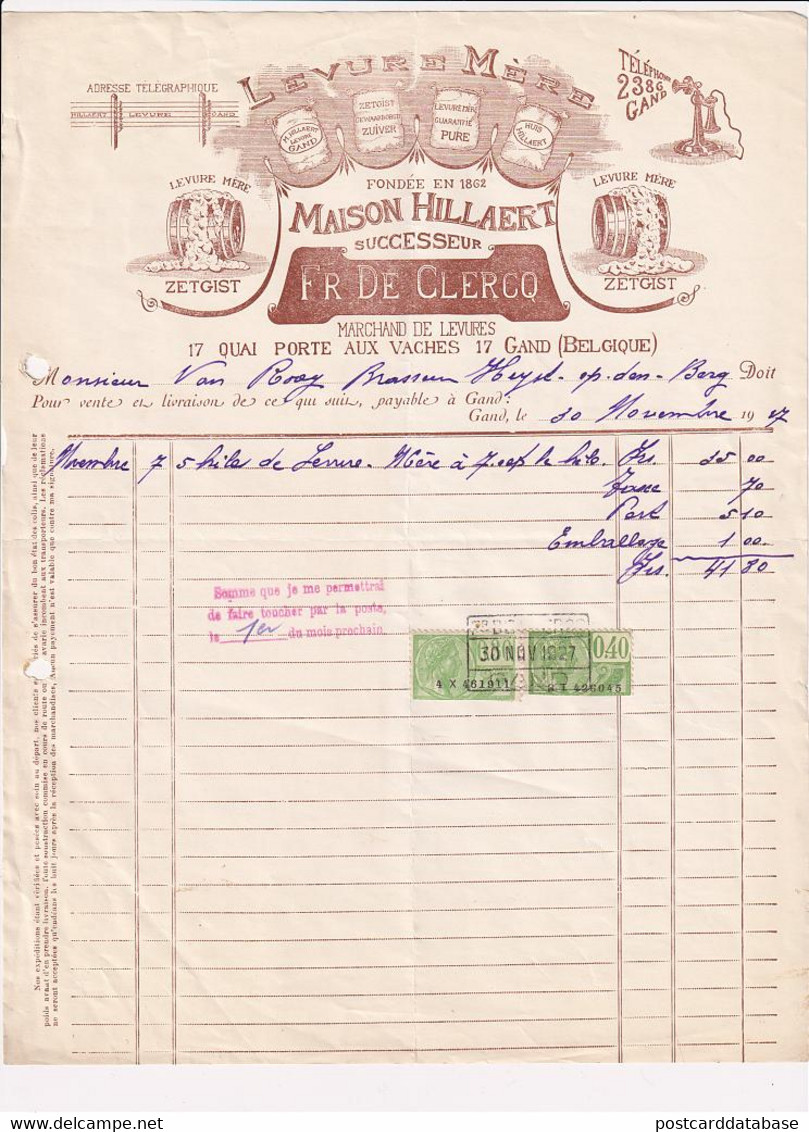 LEVURE MÈRE
ADRESSE TÉLÉGRAPHIQUE
HILLAERT LEVURE GAND
TÉLÉPHONE
2386
GAND
M. HILLAERT
LEVURE
GAND
ZETGIST
GEWAARBORGD
ZUIVER
LEVURE MÈRE
GUARANTIE
PURE
HUIS
HILLAERT
LEVURE MÈRE
ZETGIST
LEVURE MÈRE
ZETGIST
FONDÉE EN 1862
MAISON HILLAERT
SUCCESSEUR
FR DE CLERCQ
MARCHAND DE LEVURES
17 QUAI PORTE AUX VACHES 17 GAND (BELGIQUE)
Monsieur Van Rooy Brasseur Heyst-op-den-Berg Doit
Pour vente et livraison de ce qui suit, payable à Gand:
Gand, le 30 Novembre 1927
Novembre 7 5 kilos de Levure-Mère à 7.00 le kilo. Frs. 35 00
Taxe 70
Port 5 10
Emballage 1 00
Frs. 41 80
Somme que je me permettrai
de faire toucher par la poste,
le 1er du mois prochain.
30 NOV 1927
0,40
4 X 461911
426045
Nos expéditions étant vérifiées et posées avec soin au départ, nos clients sont priés de s'assurer du bon état des colis, ainsi que de leur
poids avant d'en prendre livraison. Toute soustraction commise en cours de route ou avarie incombent aux transporteurs. Les réclamations
ne seront acceptées qu'endéans les huit jours après la réception des marchandises. Aucun payement n'est valable que contre ma signature.
postcarddatabase